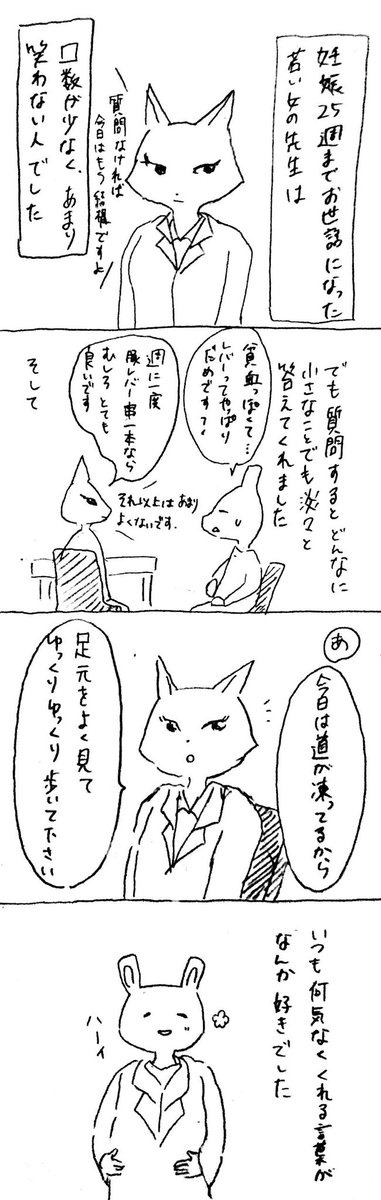 妊娠25週まで お世話になった
若い女の先生は
口数が少なく、あまり
笑わない人でした
質問なければ
今日はもう結構ですよ
でも質問すると どんなに
小さなことでも淡々と
答えてくれました
貧血っぽくて…
レバーってやっぱり
だめですか?
週に一度
豚レバー串一本なら
むしろ とても
良いです
それ以上は あまり
よくないです.
そして
あ
今日は道が凍ってるから
足元をよく見て
ゆっくりゆっくり歩いて下さい
いつも何気なくくれる言葉が
なんか好きでした
ハーイ